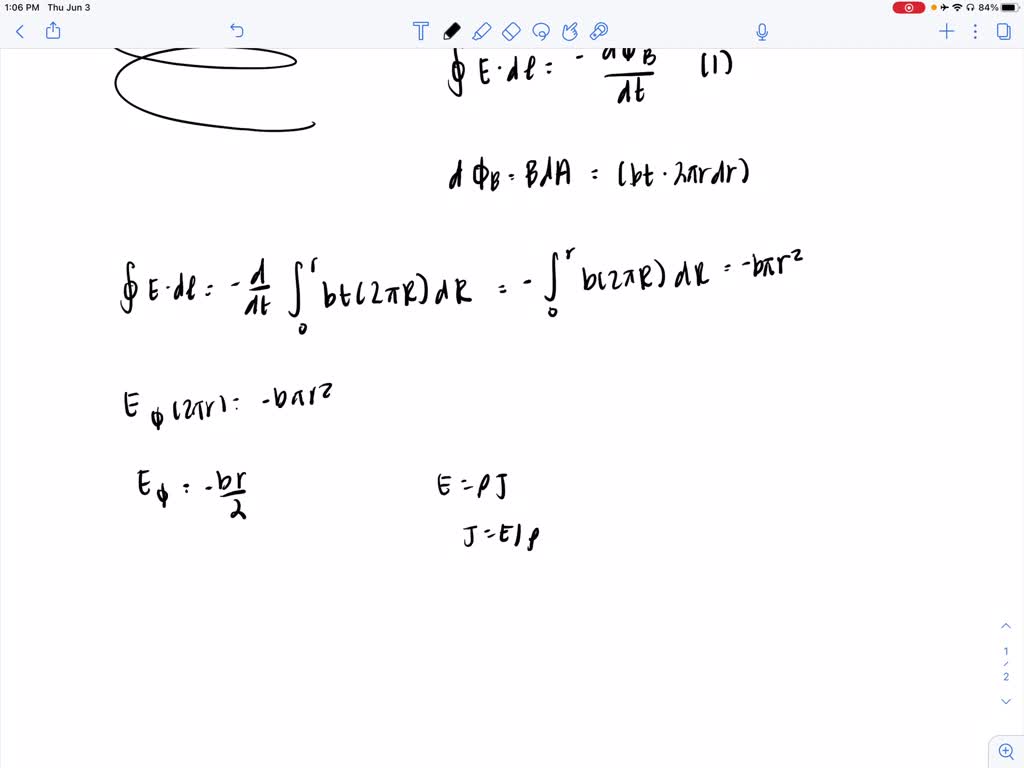 1:06 PM Thu Jun 3
84%
∮ E·dl = - dΦB/dt (1)
dΦB = BdA = (bt · 2πrdr)
∮ E·dl = - d/dt ∫₀ʳ bt(2πR)dR = - ∫₀ʳ b(2πR)dR = -bπr²
Eϕ(2πr) = -bπr²
Eϕ = -br/2
E = ρJ
J = E/ρ
1/2